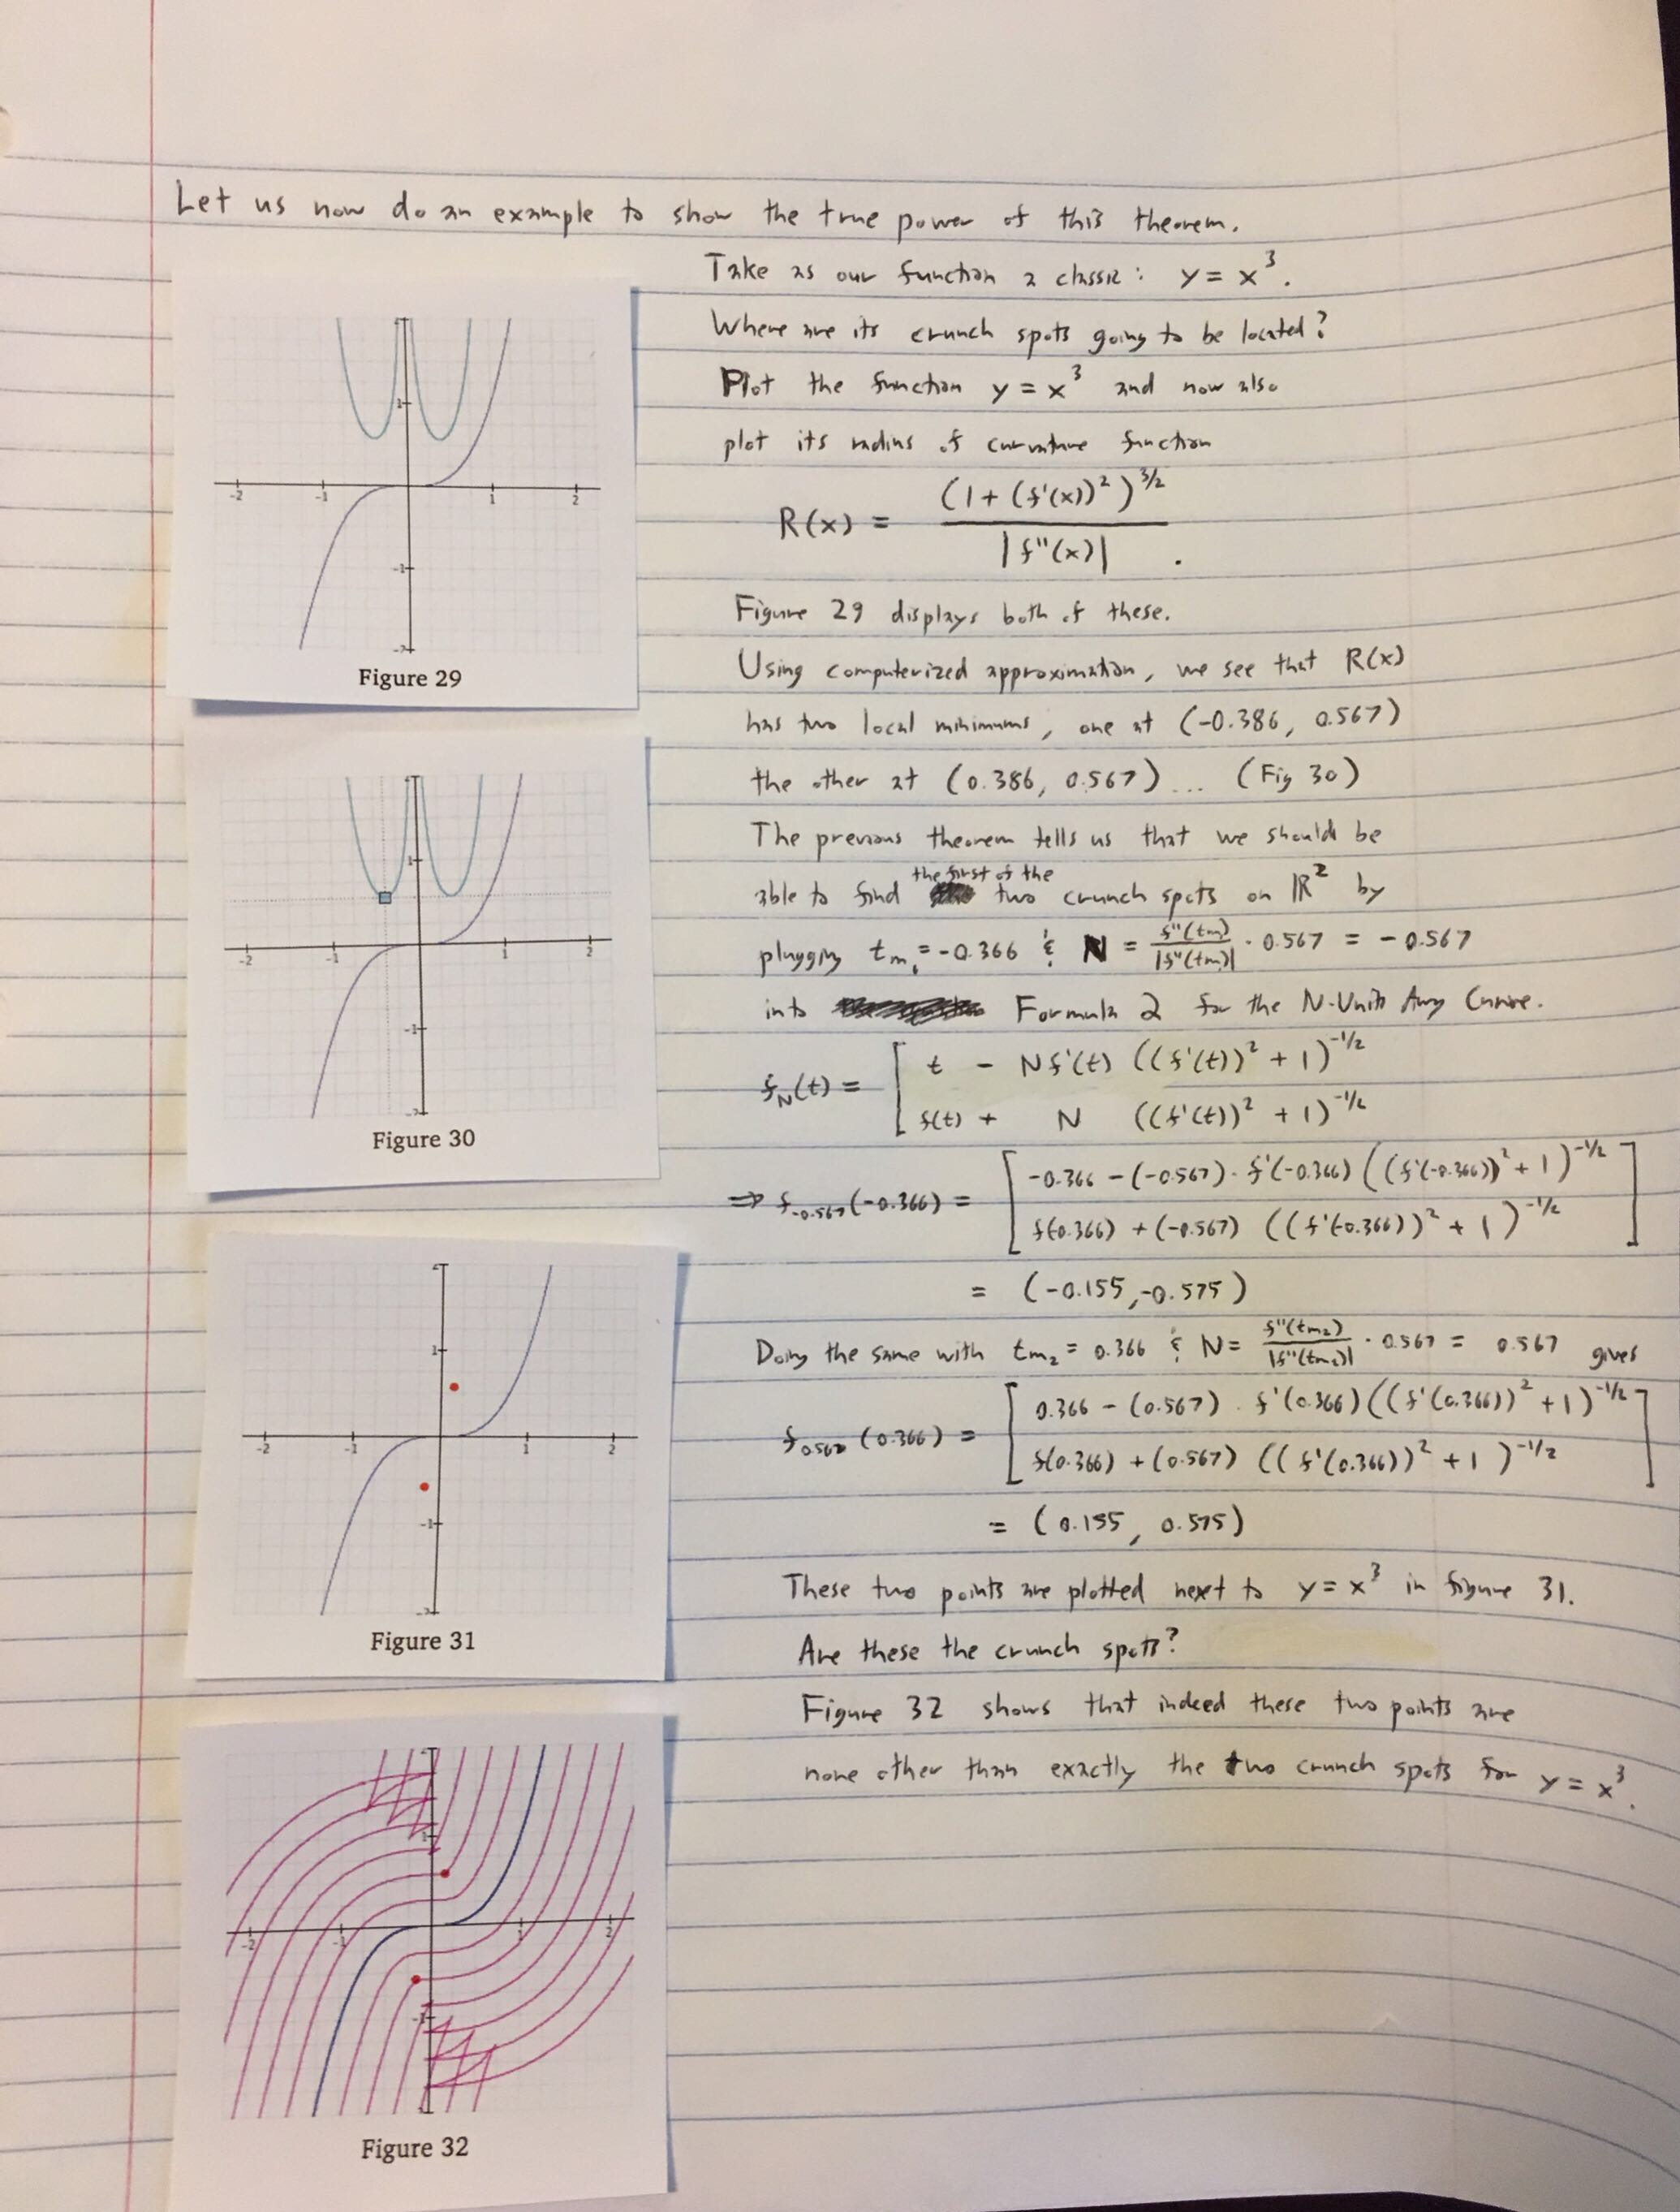 Let us now do an example to show the true power of this theorem.
Take as our function a classic: y = x³.
Where are its crunch spots going to be located?
Plot the function y = x³ and now also
plot its radius of curvature function
R(x) = (1 + (f'(x))²)^(3/2) / |f''(x)| .
Figure 29 displays both of these.
Using computerized approximation, we see that R(x)
has two local minimums, one at (-0.386, 0.567)
the other at (0.386, 0.567) ... (Fig 30)
The previous theorem tells us that we should be
able to find the first of the two crunch spots on ℝ² by
plugging t_m₁ = -0.366 & N = f''(t_m)/|f''(t_m)| · 0.567 = -0.567
into Formula 2 for the N-Units Away Curve.
f_N(t) = [ t - Nf'(t) ((f'(t))² + 1)^(-1/2)
f(t) + N ((f'(t))² + 1)^(-1/2)
⇒ f_-0.567(-0.366) = [ -0.366 - (-0.567) · f'(-0.366) ((f'(-0.366))² + 1)^(-1/2) ]
f(-0.366) + (-0.567) ((f'(-0.366))² + 1)^(-1/2)
= (-0.155, -0.575)
Doing the same with t_m₂ = 0.366 & N = f''(t_m₂)/|f''(t_m₂)| · 0.567 = 0.567 gives
f_0.567(0.366) = [ 0.366 - (0.567) · f'(0.366) ((f'(0.366))² + 1)^(-1/2) ]
f(0.366) + (0.567) ((f'(0.366))² + 1)^(-1/2)
= (0.155, 0.575)
These two points are plotted next to y = x³ in figure 31.
Are these the crunch spots?
Figure 32 shows that indeed these two points are
none other than exactly the two crunch spots for y = x³.
2
1
-2 -1 1 2
-1
-2
Figure 29
2
1
-2 -1 1 2
-1
-2
Figure 30
2
1
-2 -1 1 2
-1
-2
Figure 31
2
1
-2 -1 1 2
-1
Figure 32